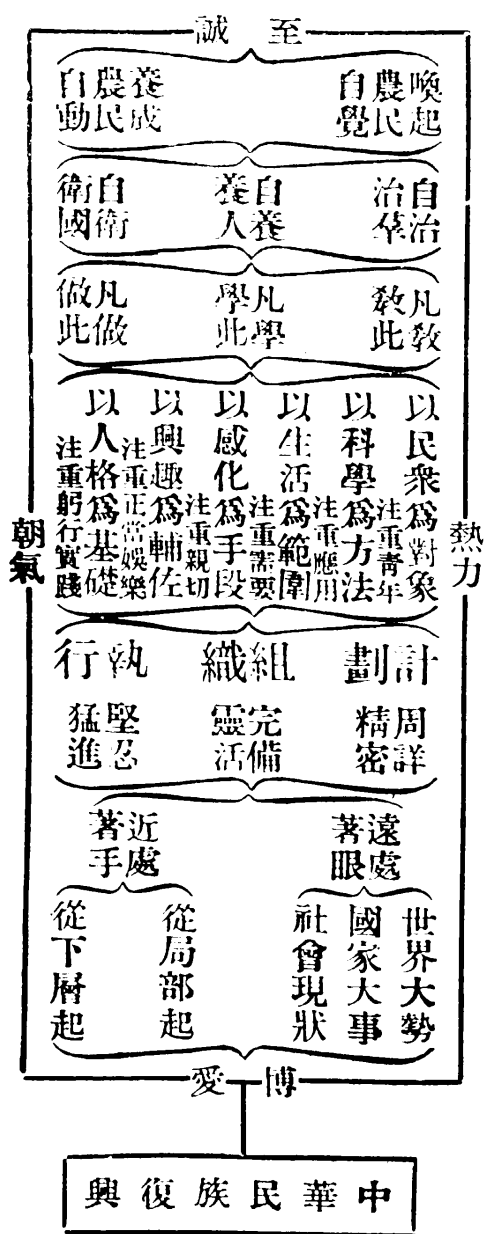 至誠
喚起
農民
自覺
養成
農民
自動
自治
治羣
自養
養人
自衛
衛國
凡敎
敎此
凡學
學此
凡做
做此
以民衆爲對象
注重靑年
以科學爲方法
注重應用
以生活爲範圍
注重需要
以感化爲手段
注重親切
以興趣爲輔佐
注重正當娛樂
以人格爲基礎
注重躬行實踐
熱力
朝氣
計劃
組織
執行
周詳
精密
完備
靈活
堅忍
猛進
遠處
著眼
近處
著手
世界大勢
國家大事
社會現狀
從局部起
從下層起
博愛
中華民族復興